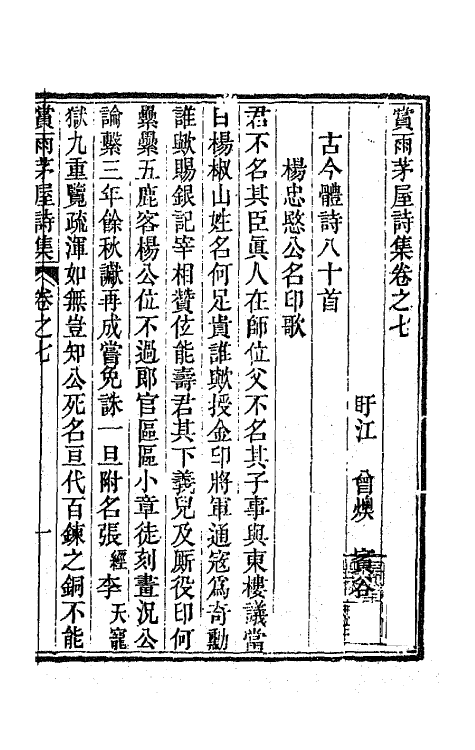 賞雨茅屋詩集卷之七
盱江　曾燠　賓谷
古今體詩八十首
楊忠愍公名印歌
君不名其臣眞人在師位父不名其子事與東樓議當
日楊椒山姓名何足貴誰歟授金印將軍通寇爲奇勳
誰歟賜銀記宰相贊佐能壽君其下義兒及厮役印何
纍纍五鹿客楊公位不過郎官區區小章徒刻畫況公
論繫三年餘秋讞再成嘗免誅一旦附名張經李天寵
獄九重覽疏渾如無豈知公死名亘代百鍊之銅不能
賞雨茅屋詩集　卷之七　一